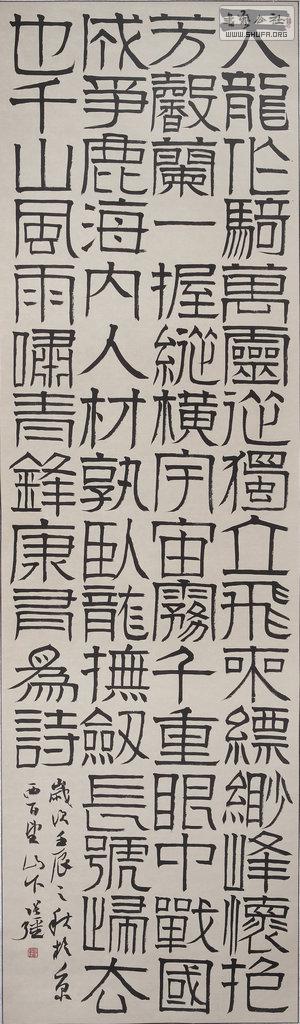 天龍作騎萬靈從獨立飛來縹緲峰懷抱
芳馨蘭一握縱橫宇宙霧千重眼中戰國
成爭鹿海內人材孰臥龍撫劍長號歸去
也千山風雨嘯青鋒康有為詩
歲次壬辰之秋於京
西百望山下
WWW.SHUFA.ORG